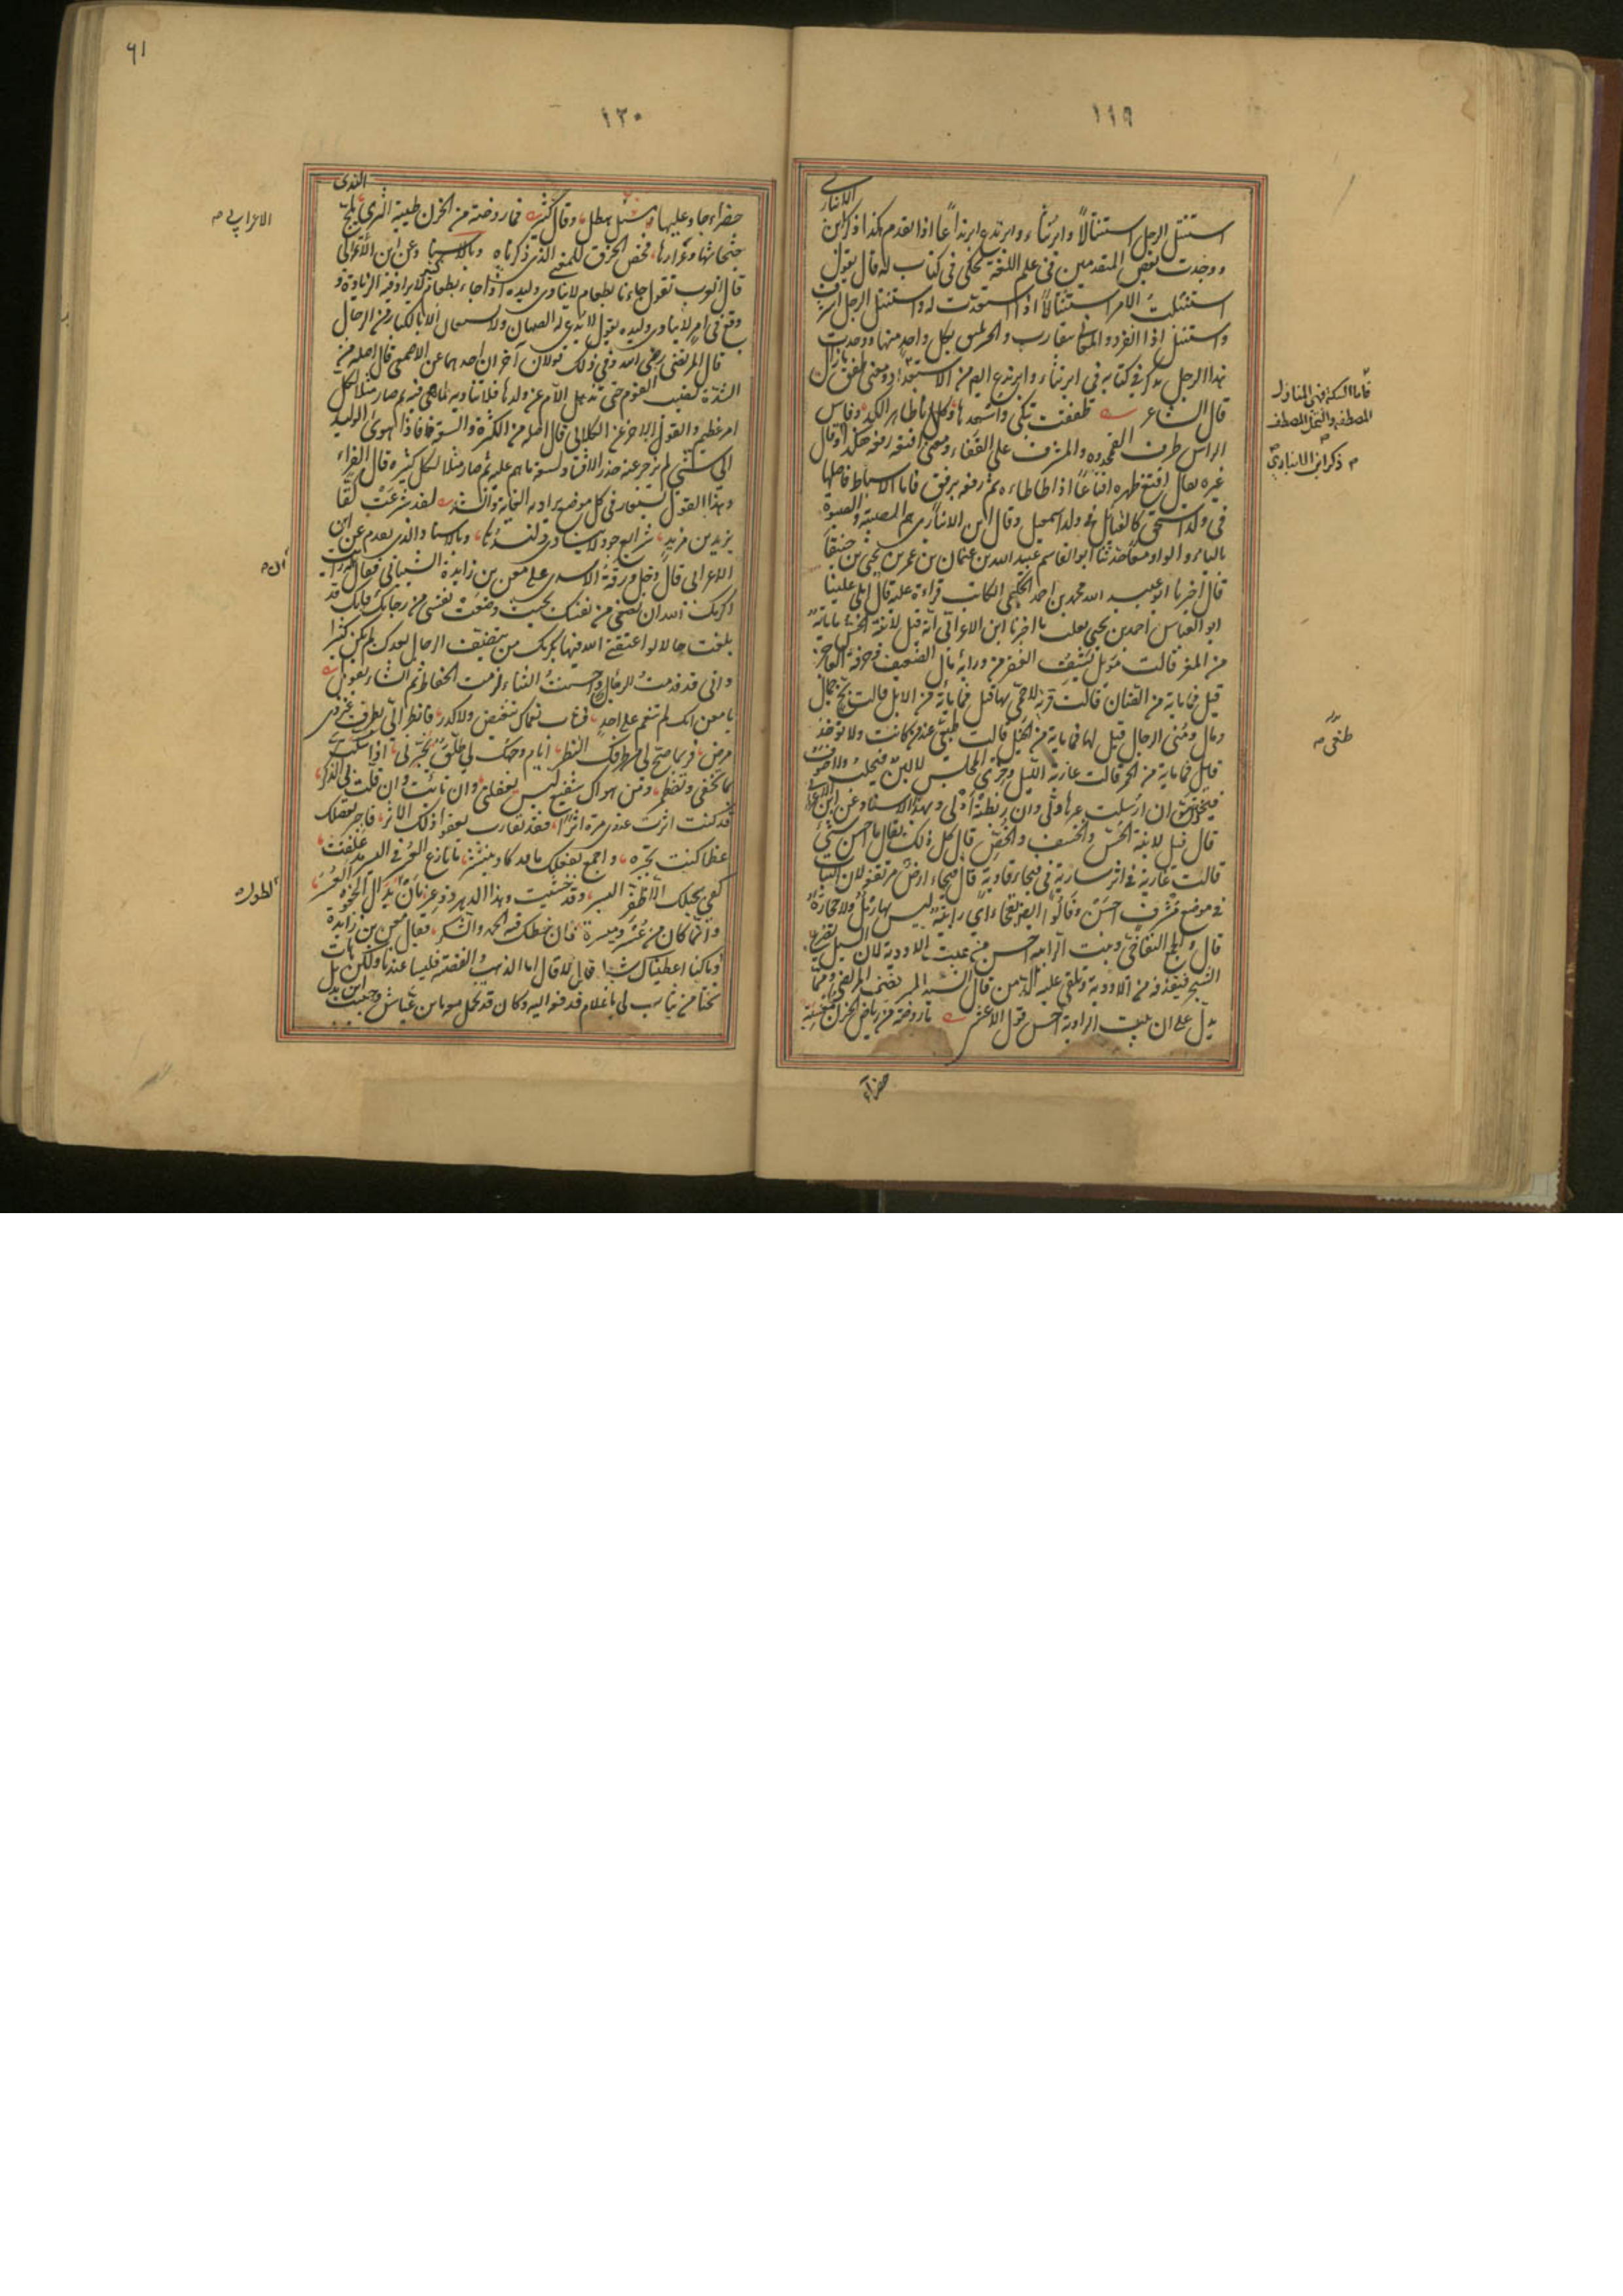 ١١٩
الانباري
استنتل الرجل استنتالاً وابرنثاء وابرندع ابرنداعاً اذا تقدم هكذا ذكر ابن
ووجدت بعض المتقدمين في علم اللغة يحكى في كتاب له قال يقول
استنتلت الامر استنتالاً اذا استعددت له واستنتل الرجل
واستنتل اذا انفرد والمعاني متقاربة والخبر بكل واحد منها ووجدت
هذا الرجل في كتابه في ابرنثاء وابرندع الاستعداد ومعنى طفق ما زال
قال الشاعر طفقت تبكي واسعدها وكلانا ظاهر الكمد وفاس
الراس طرف القمحدوة والمشرف على القفاء ومعنى اقنعه رفعه هكذا وقال
غيره يقال اقنع ظهره اقناعاً اذا طاطاءه ثم رفعه برفق فاما الاسباط فاصلها
في ولد اسحق كالقبائل في ولد اسمعيل وقال ابن الانباري هم الصبية والصبوة
بالياء والواو معاً حدثنا ابو القاسم عبيد الله بن عثمان بن يحيى بن جنيقا
قال اخبرنا ابو عبد الله محمد بن احمد الحكيمي الكاتب قراءة عليه قال املى علينا
ابو العباس احمد بن يحيى ثعلب قال اخبرنا ابن الاعرابي انه قيل لابنة الخس ما ماية
من المعز قالت مويل يشف الفقر من ورائه مال الضعيف وحرفة العاجز
قيل فما ماية من الضان قالت قرية لا حمى بها قيل فما مأية من الابل قالت بخ جمال
ومال ومنى الرجال قيل لها فما ماية من الخيل قالت طغى عند من كانت ولا توجد
قيل فما ماية من الحمر قالت عازبة الليل وخزي المجلس لا لبن فيحلب ولا صوف
فيجز ان ربطت عيرها ادلى وان ارسلت ولى وبهذا الاسناد عن ابن الاعرابي
قال قيل لابنة الخس والخسف والخص قال كل ذلك يقال ما احسن شئ
قالت غادية في اثر سارية في نبخاء قاوية قال نبخاء ارض مرتفعة لان النبات
في موضع مشرف احسن وقالوا ايضا نفخاء اي رابية ليس بها رمل ولا حجارة
قال ونبت الرابية احسن من نبت الاودية لان السيل يصرع
الشجر فيقذفه في الاودية ويلقى عليه الدمن قال السيد المرتضى ومما
يدل على ان نبت الرابية احسن قول الاعشى ما روضة من رياض الحزن معشبة
خضراء
فاما السكة فهي المنازل
المصطفة والنخل المصطف
ذكر ابن الانباري
طغى
١٢٠
٦١
الندى
خضراء جاد عليها مسبل هطل وقال كثير فما روضة من الحزن طيبة الثرى يمج
جثجاثها وعرارها فخص الحزن للمعنى الذي ذكرناه وبالاسناد عن ابن الاعرابي
قال العرب تقول جاءنا بطعام لا ينادى وليده اذا جاء بطعام كثير لا يراد فيه الزيادة و
وقع في امر لا ينادى وليده يقول لا يدعى له الصبيان ولا يستعان الا بالكبار من الرجال
قال المرتضى رضي الله وفي ذلك قولان آخران احدهما عن الاصمعي قال اصله من
الشدة تصيب القوم حتى تذهل الام عن ولدها فلا تناديه لما هي فيه ثم صار مثلا لكل
امر عظيم والقول الاخر عن الكلابي قال اصله من الكثرة والسعة فاذا اهوى الوليد
الى شئ لم يزجر عنه حذر الافساد لسعة ما هم عليه ثم صار مثلا لكل كثرة قال الفراء
وهذا القول يستعار في كل موضع يراد به الغاية وانشد لقد شرعت كفا
يزيد بن مزيد شرايع جود لا ينادى وليدها وبالاسناد الذي تقدم عن ابن
الاعرابي قال دخل ورقة الاسدي على معن بن زايدة الشيباني فقال
اكرمك الله ان تضعني من نفسك بحيث وضعت نفسي من رجائك فانك قد
بلغت حالا لو اعتقني الله فيها بكرمك من تنصيف الرجال بعدك لم يكن كثيرا
واني قد قدمت الرجاء واحسنت الثناء ولزمت الحفاظ ثم انشاء يقول
يا معن انك لم تنعم على احد فشاب نعماك تنغيص ولا كدر فانظر الي بطرف غير ذي
مرض فربما صح لي من طرفك النظر ايام وجهك لي طلق يخبرني اذا سكت
بما تخفى وتضطمر ومن هواك شفيع ليس يغفلني وان نأيت وان قلت لي الذكر
قد كنت اثرت عندي مرة اثرا فقد تقارب يعفو ذلك الاثر فاجبر بفضلك
عظما كنت تجبره واجمع بفضلك ما قد كاد ينتشر ما نازع العسر في اليسر مذ علقت
كفي بحبلك الا ظفر اليسر وقد خشيت وهذا الدهر ذو غير بأن يدال لطول الجفوة العسر
وانما كان من عسر وميسرة فان حظك فيه الحمد والشكر فقال معن بن زايدة
اوما كنا اعطيناك شيئا قال لا قال اما الذهب والفضة فليسا عندنا ولكن هات
تختا من ثيابي يا غلام فدفعه اليه وكان قد تحمل مؤنا بن عياش وحبيب ابن بديل
الاعرابي
لطول